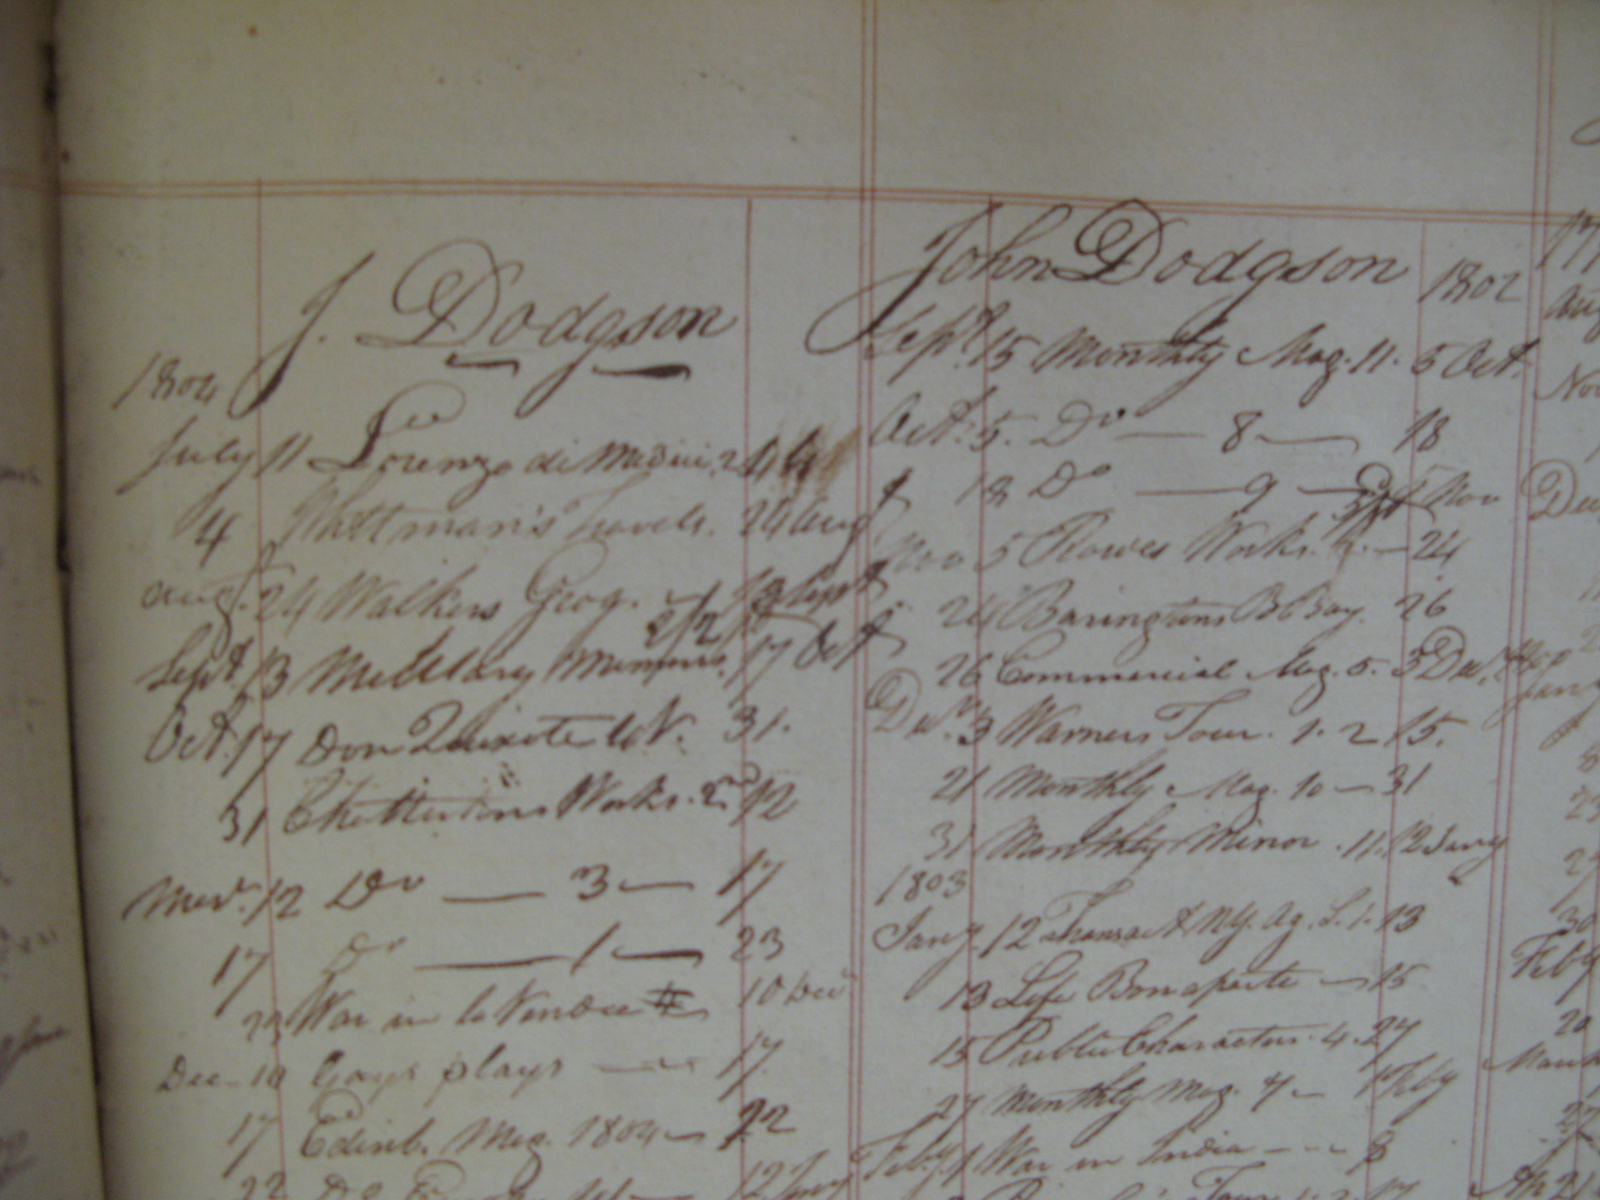 J. Dodgson
1804
July 11 Lorenzo di Medici, 2
4 Wittman's Travels. 24 Augt
Augt. 24 Walkers Geog. 13 Sept
Sept. 13 Millitary Memoirs. 17 Oct
Oct. 17 Don Quixote 4 V. 31.
31 Chattertons Works. 2nd 12
Nov. 12 Do — 3 — 17
17 Do — 1 — 23
23 War in la Vendee 10 Dec
Dec. 10 Gays plays — 17.
17 Edinb. Mag. 1804 — 22
22
John Dodgson
1802
Sept. 15 Monthly Mag. 11. 5 Oct.
Oct. 5. Do — 8 — 18
18 Do — 9 — 5 Nov
Nov 5 Rowes Works. — 24
24 Baringtons B Bay. 26
26 Commercial Mag. 5. 3 Dec.
Dec. 3 Warners Tour. 1. 2 15.
21 Monthly Mag. 10 — 31
31 Monthly Mirror. 11. 12 Jany
1803
Jany. 12 Transact N.Y. Ag. S. 1. 13
13 Life Bonaparte — 15
15 Public Characters. 4. 27
27 Monthly Mag. 7 — 1 Feby
Feby. 1 War in India — 8